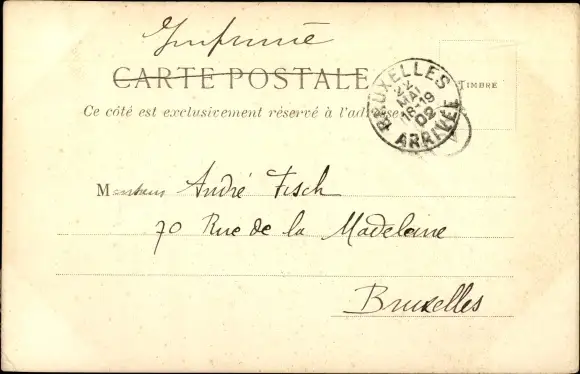 Imprimé
CARTE POSTALE
TIMBRE
Ce côté est exclusivement réservé à l'adresse
BRUXELLES
22
MAI
18-19
02
ARRIVÉE
Monsieur André Fisch
70 Rue de la Madeleine
Bruxelles